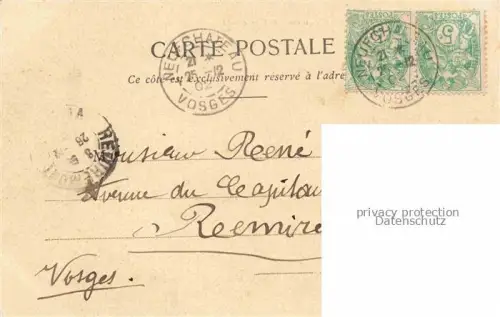 CARTE POSTALE
Ce côté est exclusivement réservé à l'adre
NEUFCHATEAU
21 *
25 - 12
02
VOSGES
NEUFCHATEAU
21 *
12
02
VOSGES
5
REMIREMONT
25
Monsieur René
Avenue du Capitai
Remire
Vosges.
privacy protection
Datenschutz